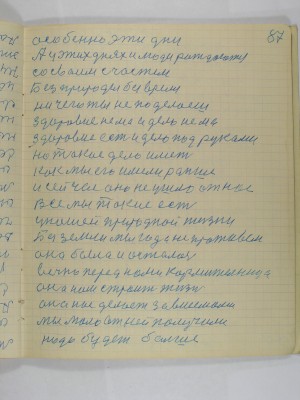 87
особенно эти дни
А у этих днях и люди рождают
со своим счастем
Без природы был врем
ничего ты не поделаеш
здоровие неме и дело нема
здоровие ест и дело под руками
но такое дело имет
как мы его имели ранше
и сейчас оно не ушло от нас
Все мы такие ест
у нашей природной жизни
Без земли мы год не проживем
она была и осталас
вечно перед нами кормителница
она нам строит жизн
она нас делает завмеими
мы мало от ней получили
надо будет болше